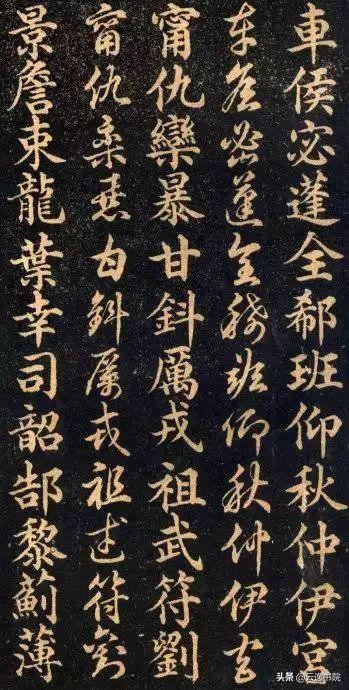 車侯宓蓬全郗班仰秋仲伊宮
車侯宓蓬全郗班仰秋仲伊宮
甯仇欒暴甘鈄厲戎祖武符劉
甯仇欒暴甘鈄厲戎祖武符劉
景詹束龍葉幸司韶郜黎薊薄
头条